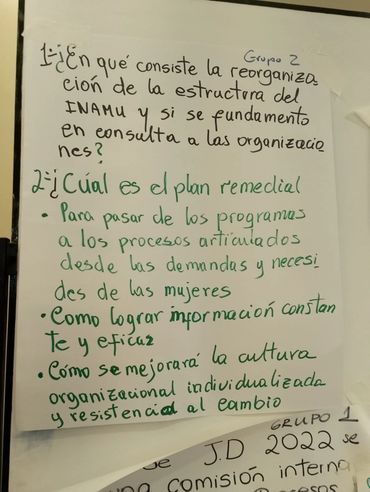 Grupo 2
1-¿En qué consiste la reorganiza
ción de la estructura del
INAMU y si se fundamento
en consulta a las organizacio
nes?
2-¿Cúal es el plan remedial
• Para pasar de los programas
a los procesos articulados
desde las demandas y necesi
des de las mujeres
• Como lograr información constan
te y eficaz
• Cómo se mejorará la cultura
organizacional individualizada
y resistencia al cambio
GRUPO 1
se J.D 2022 se
comisión interna